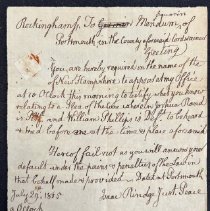 Rockingham ss. To Mendum, of
Portsmouth in the County aforesaid
Greeting
You, are hereby required in the name of the
of New Hampshire to appear at my Office
at 10 O'Clock this morning to testify what you know
relating to a Plea of the Case wherein Joshua
is and William Phillips is Deft. to be heard
and before me at the time & place aforesaid
Hereof fail not as you will answer your
default under the pains & penalties of the Law in that
behalf made & provided. Dated at Portsmouth
July 29th 1815
Isaac Rindge Just. Peace